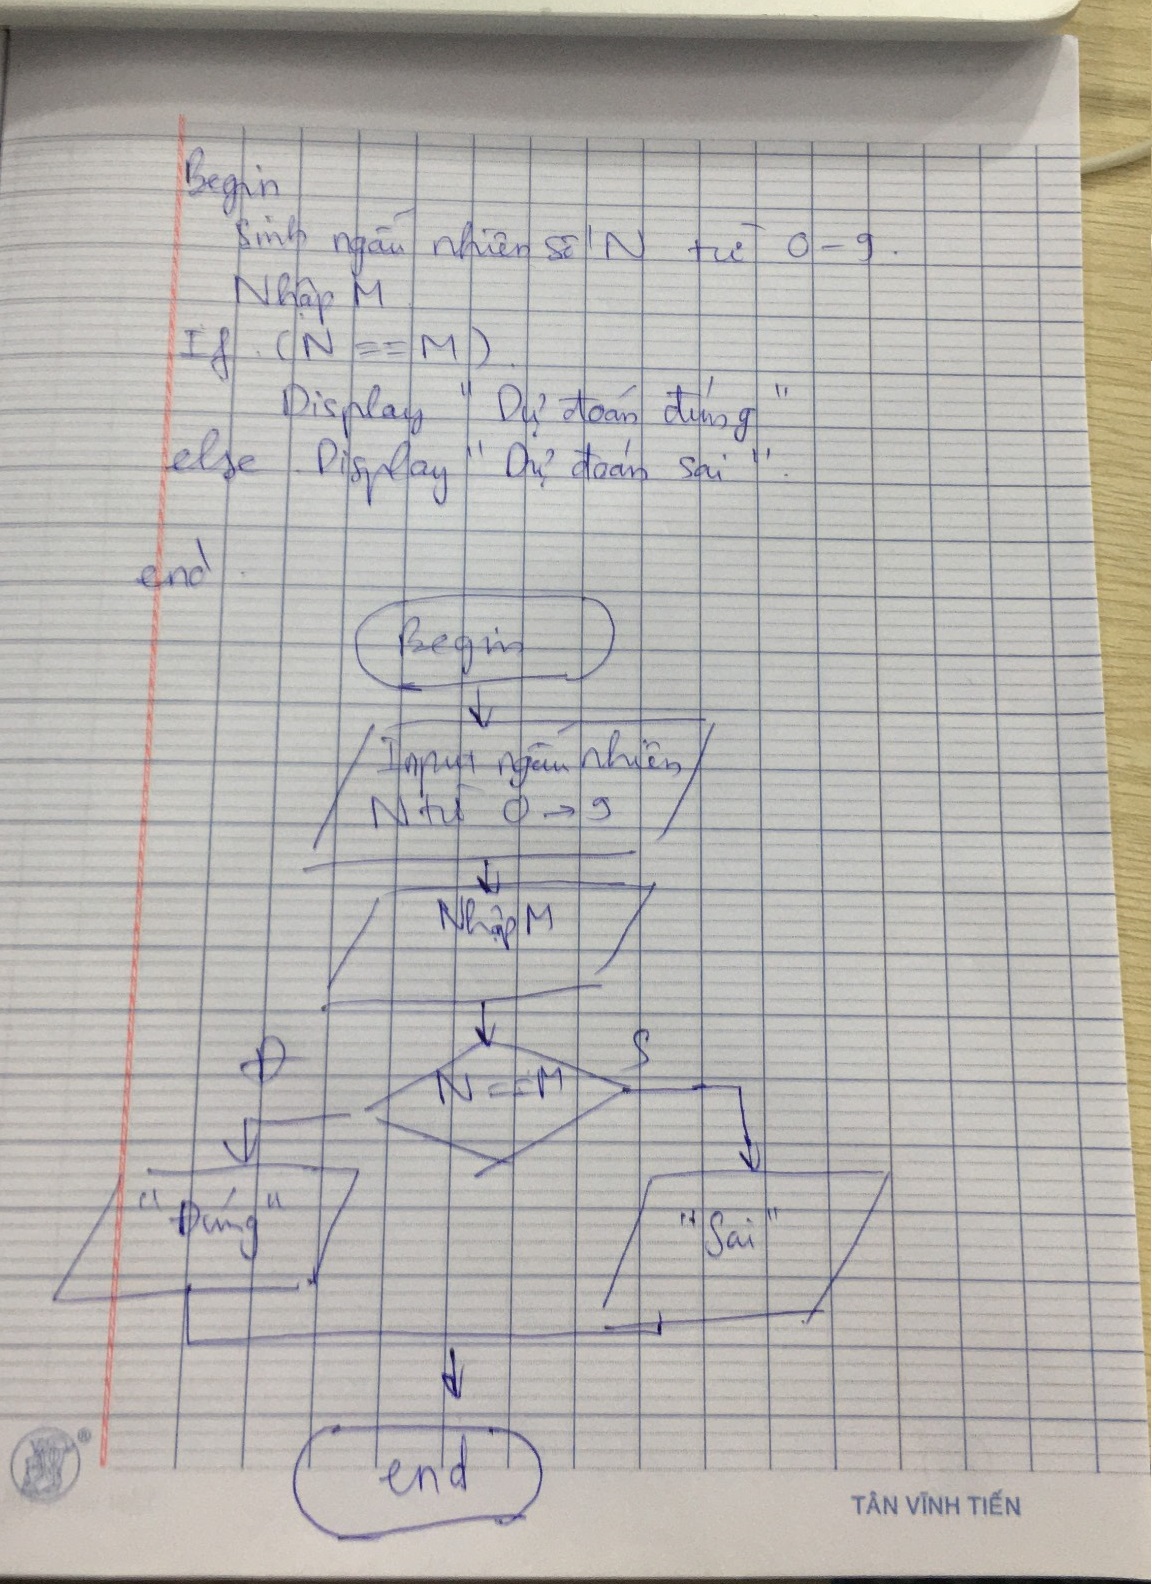 Begin
Sinh ngẫu nhiên số N từ 0 - 9.
Nhập M
If (N == M)
Display " Dự đoán đúng "
else Display " Dự đoán sai ".
end.
Begin
Input ngẫu nhiên
N từ 0 → 9
Nhập M
N == M
Đ
S
"Đúng"
"Sai"
end
TÂN VĨNH TIẾN